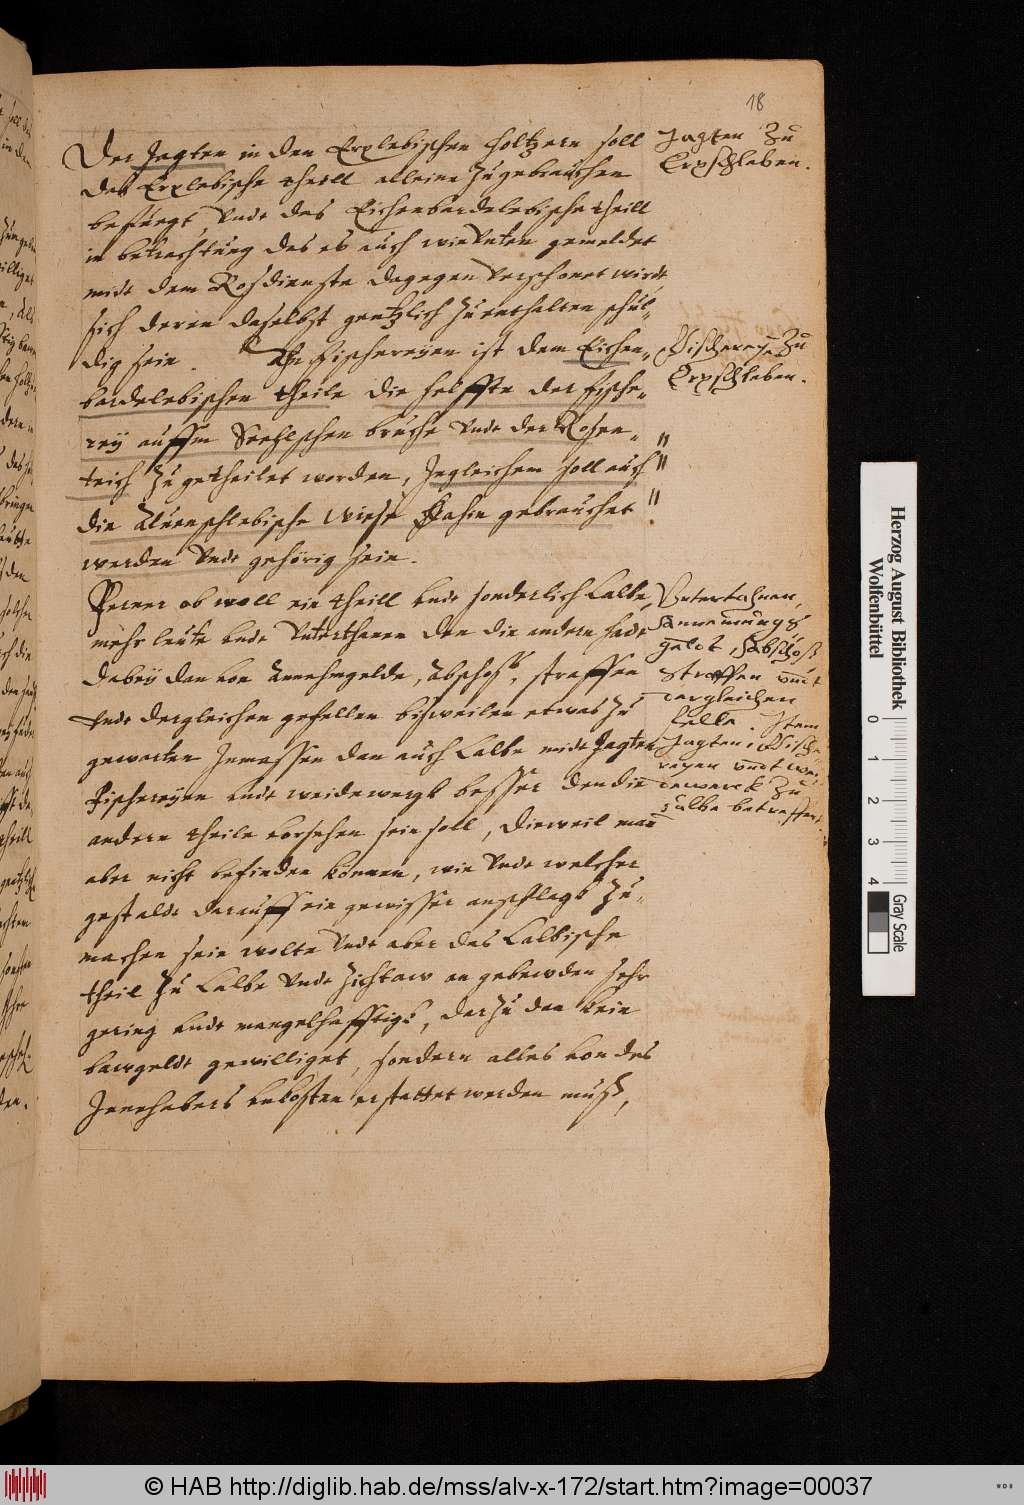 18
Der Jagten in den Erxlebischen holtzern soll
das Erxlebische theill alleine zugebrauchen
befuegt, Undt das Eichenbardelebische theill
in betrachtung das es auch wie Unten gemeldet
midt dem Rosdienste dagegen Verschonet wirdt,
sich deren daselbst gentzlich zu enthalten schul-
dig sein. An Fischereyen ist dem Eichen-
bardelebischen theile die helffte der fische-
rey auffm Seehlschen bruche Undt der Rosen-
teich zu getheilet worden, Ingleichem soll auch
die Aluenschlebische Wiese dahin gebrauchet
werden Undt gehörig sein.
Ferner ob woll ein theill Undt sonderlich Calbe,
mehr leute Undt Unterthanen den die andern hadt
dabey dan von Annehmgelde, Abschoß, straffen
Undt dergleichen gefellen bisweilen etwas zu
gewarten Inmassen dan auch Calbe midt Jagten
Fischereyen Undt weidewergk besser den die
andern theile vorsehen sein soll, Dieweil man
aber nicht befinden können, wie Undt welcher
gestaldt darauff ein gewisser anschlagk zu-
machen sein wolte Undt aber das Calbische
theil zu Calbe Undt Zichtaw an gebewden sehr
gering Undt mangelhafftigk, darzu dan kein
bawgeldt gewilliget, sondern alles von des
Innehabers Unkosten erstattet werden muß,
Jagten zu
Erpschleben.
Fischereyen zu
Erpschleben.
Unterthanen,
Annemungs
geldt, Abschoß
Straffen undt
dergleichen
felle. Item
Jagten, Fische-
reyen undt wei-
dewerck zu
Calbe betreffent.
Herzog August Bibliothek
Wolfenbüttel
0 1 2 3 4
Gray Scale
© HAB http://diglib.hab.de/mss/alv-x-172/start.htm?image=00037